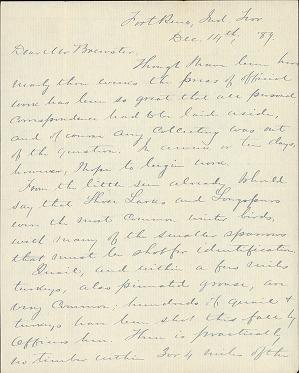 Fort Reno, Ind. Terr
Dec. 14th, '89.
Dear Mr Brewster,
Though I have been here
nearly three weeks the press of official
work has been so great that all personal
correspondence had to be laid aside,
and of course any collecting was out
of the question. In a week or ten days,
however, I hope to begin work.
From the little seen already I should
say that Shore Larks and Longspurs
were the most common winter birds,
with many of the smaller sparrows
that must be shot for identification
Quail, and within a few miles
turkeys, also pinnated grouse, are
very common; hundreds of quail &
turkeys have been shot this fall by
Officers here. There is practically
no timber within 3 or 4 miles of the